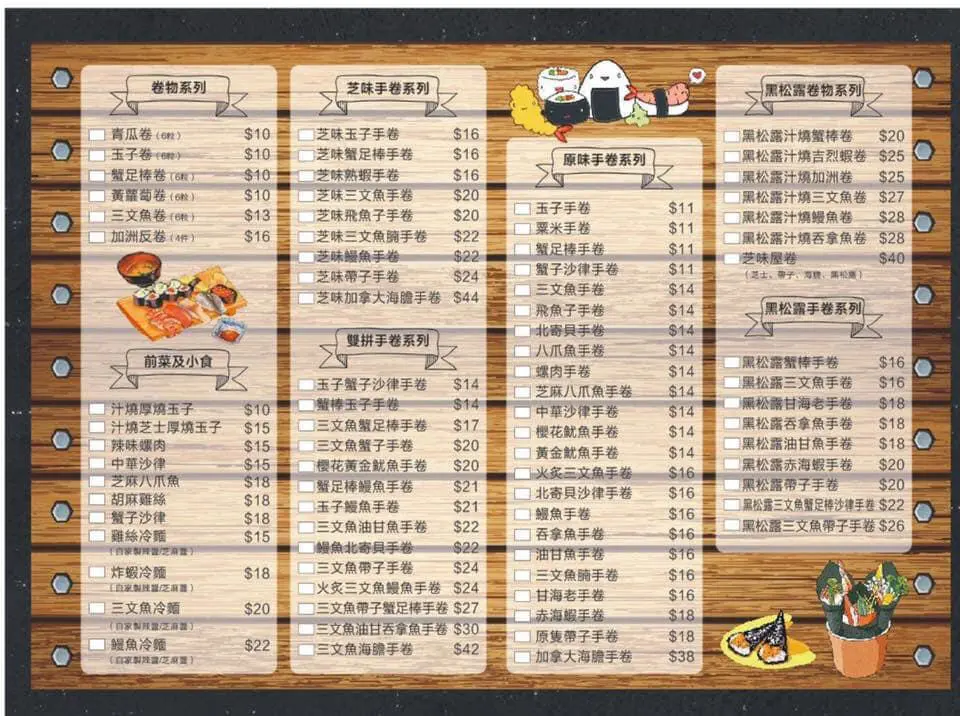 卷物系列
青瓜卷（6粒） $10
玉子卷（6粒） $10
蟹足棒卷（6粒） $10
黃蘿蔔卷（6粒） $10
三文魚卷（6粒） $13
加洲反卷（4件） $16
前菜及小食
汁燒厚燒玉子 $10
汁燒芝士厚燒玉子 $15
辣味螺肉 $15
中華沙律 $15
芝麻八爪魚 $18
胡麻雞絲 $18
蟹子沙律 $18
雞絲冷麵 $15
（自家製辣醬/芝麻醬）
炸蝦冷麵 $18
（自家製辣醬/芝麻醬）
三文魚冷麵 $20
（自家製辣醬/芝麻醬）
鰻魚冷麵 $22
（自家製辣醬/芝麻醬）
芝味手卷系列
芝味玉子手卷 $16
芝味蟹足棒手卷 $16
芝味熟蝦手卷 $16
芝味三文魚手卷 $20
芝味飛魚子手卷 $20
芝味三文魚腩手卷 $22
芝味鰻魚手卷 $22
芝味帶子手卷 $24
芝味加拿大海膽手卷 $44
雙拼手卷系列
玉子蟹子沙律手卷 $14
蟹棒玉子手卷 $14
三文魚蟹足棒手卷 $17
三文魚蟹子手卷 $20
櫻花黃金魷魚手卷 $20
蟹足棒鰻魚手卷 $21
玉子鰻魚手卷 $21
三文魚油甘魚手卷 $22
鰻魚北寄貝手卷 $22
三文魚帶子手卷 $24
火炙三文魚鰻魚手卷 $24
三文魚帶子蟹足棒手卷 $27
三文魚油甘吞拿魚手卷 $30
三文魚海膽手卷 $42
原味手卷系列
玉子手卷 $11
粟米手卷 $11
蟹足棒手卷 $11
蟹子沙律手卷 $11
三文魚手卷 $14
飛魚子手卷 $14
北寄貝手卷 $14
八爪魚手卷 $14
螺肉手卷 $14
芝麻八爪魚手卷 $14
中華沙律手卷 $14
櫻花魷魚手卷 $14
黃金魷魚手卷 $14
火炙三文魚手卷 $16
北寄貝沙律手卷 $16
鰻魚手卷 $16
吞拿魚手卷 $16
油甘魚手卷 $16
三文魚腩手卷 $16
甘海老手卷 $16
赤海蝦手卷 $18
原隻帶子手卷 $18
加拿大海膽手卷 $38
黑松露卷物系列
黑松露汁燒蟹棒卷 $20
黑松露汁燒吉烈蝦卷 $25
黑松露汁燒加洲卷 $25
黑松露汁燒三文魚卷 $27
黑松露汁燒鰻魚卷 $28
黑松露汁燒吞拿魚卷 $28
芝味屋卷 $40
（芝士、帶子、海膽、黑松露）
黑松露手卷系列
黑松露蟹棒手卷 $16
黑松露三文魚手卷 $16
黑松露甘海老手卷 $18
黑松露吞拿魚手卷 $18
黑松露油甘魚手卷 $18
黑松露赤海蝦手卷 $20
黑松露帶子手卷 $20
黑松露三文魚蟹足棒沙律手卷 $22
黑松露三文魚帶子手卷 $26